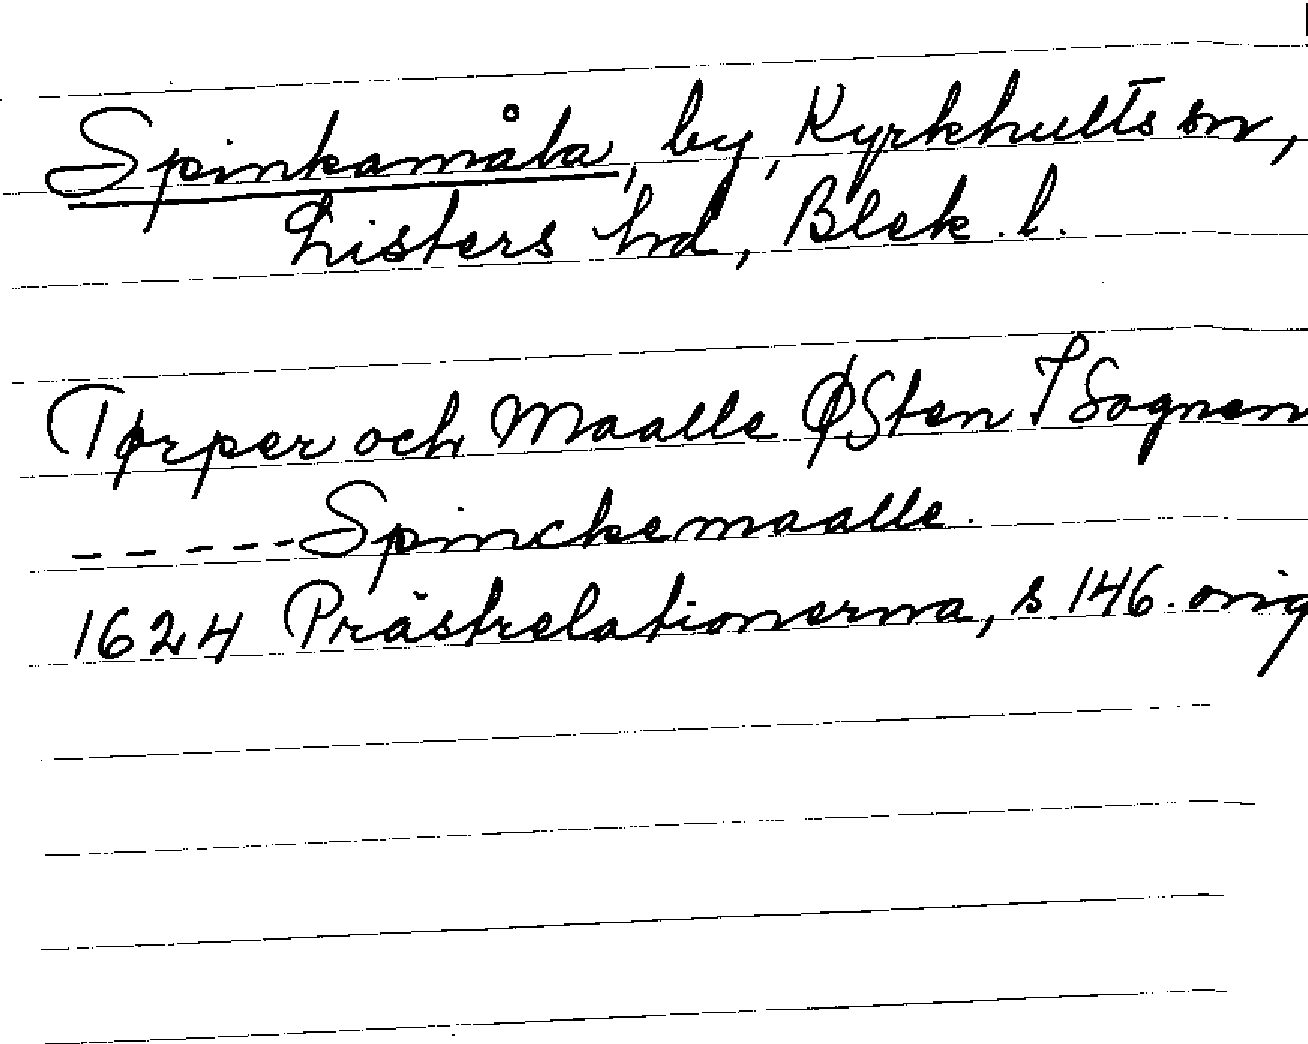 Spinkamåla, by, Kyrkhults sn,
Listers hd, Blek. l.
Tørper och Maalle ØSten I Sognen
- - - - - Spinckemaalle.
1624 Prästrelationerna, s. 146. orig